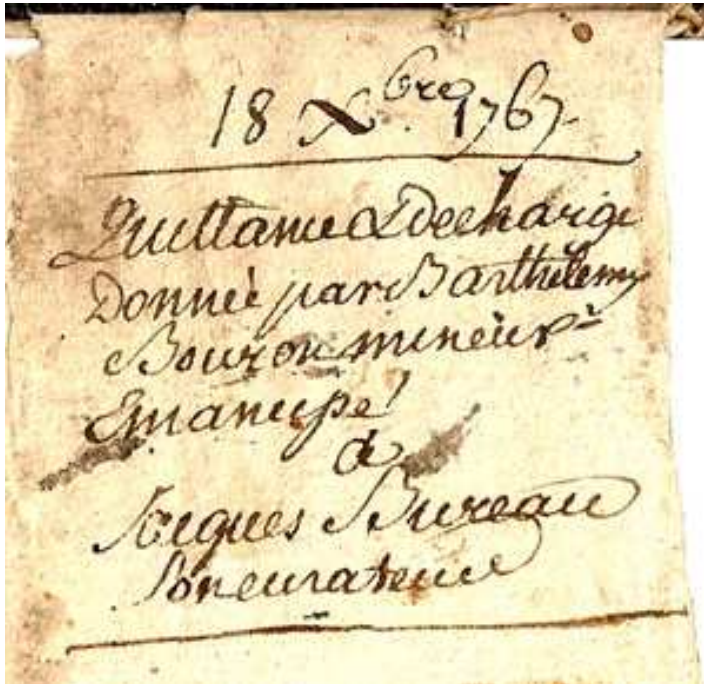 18 Xbre. 1767
Quittance & decharge
Donneé par Barthélemy
Bouron mineur
Emancipé
a
Jacques Bureau
son curateur